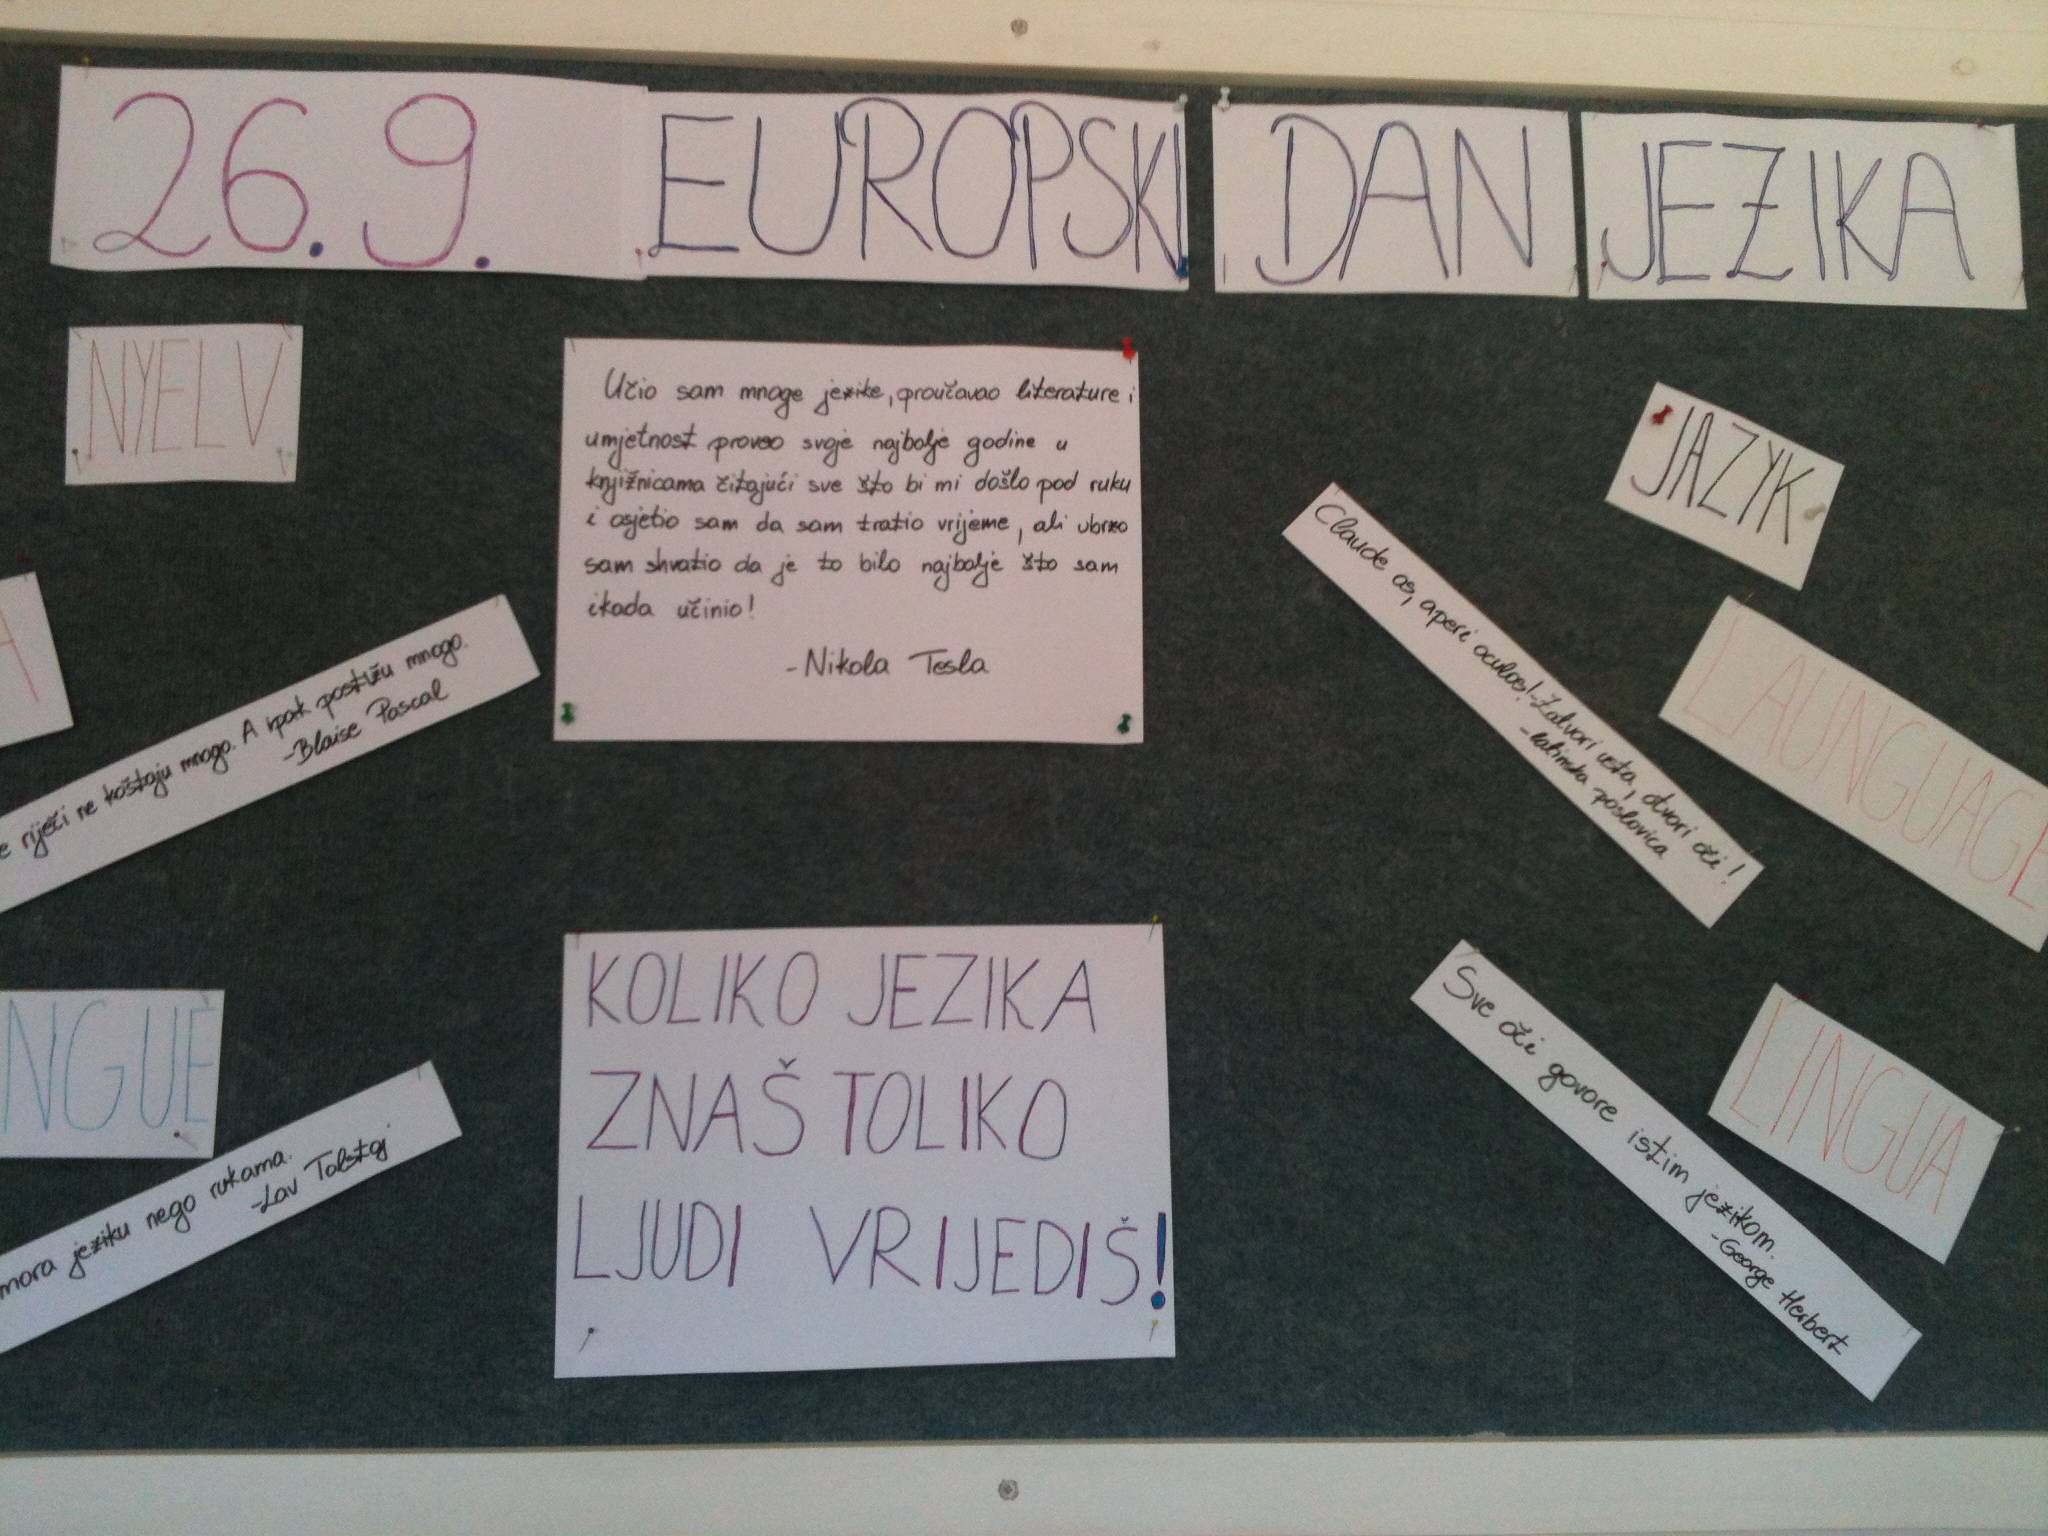 26.9. EUROPSKI DAN JEZIKA
NYELV
Učio sam mnoge jezike, proučavao literature i
umjetnost proveo svoje najbolje godine u
knjižnicama čitajući sve što bi mi došlo pod ruku
i osjetio sam da sam tratio vrijeme, ali ubrzo
sam shvatio da je to bilo najbolje što sam
ikada učinio!
-Nikola Tesla
JAZYK
Claude os, aperi oculos!-Zatvori usta, otvori oči!
-latinska poslovica
LAUNGUAGE
A
e riječi ne koštaju mnogo. A ipak postižu mnogo.
-Blaise Pascal
NGUE
mora jeziku nego rukama.
-Lav Tolstoj
KOLIKO JEZIKA
ZNAŠ TOLIKO
LJUDI VRIJEDIŠ!
Sve oči govore istim jezikom.
-George Herbert
LINGUA